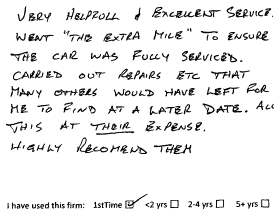 VERY HELPFULL & EXCELLENT SERVICE.
WENT "THE EXTRA MILE" TO ENSURE
THE CAR WAS FULLY SERVICED.
CARRIED OUT REPAIRS ETC THAT
MANY OTHERS WOULD HAVE LEFT FOR
ME TO FIND AT A LATER DATE. ALL
THIS AT THEIR EXPENSE.
HIGHLY RECOMEND THEM
I have used this firm: 1stTime ☑ <2 yrs ☐ 2-4 yrs ☐ 5+ yrs ☐